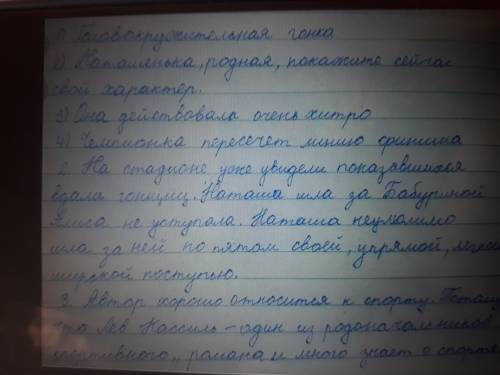 1) Головокружительная гонка
2) Наташенька, родная, покажите сейчас
свой характер.
3) Она действовала очень хитро
4) Чемпионка пересечет линию финиша
2. На стадионе уже увидели показавшихся
вдали гонщиц. Наташа шла за Бабуриной
Алиса не уступала. Наташа неумолимо
шла за ней по пятам своей, упрямой, легкой
широкой поступью.
3. Автор хорошо относится к спорту. Потому
что Лев Кассиль - один из родоначальников
спортивного,, романа и много знает о спорте